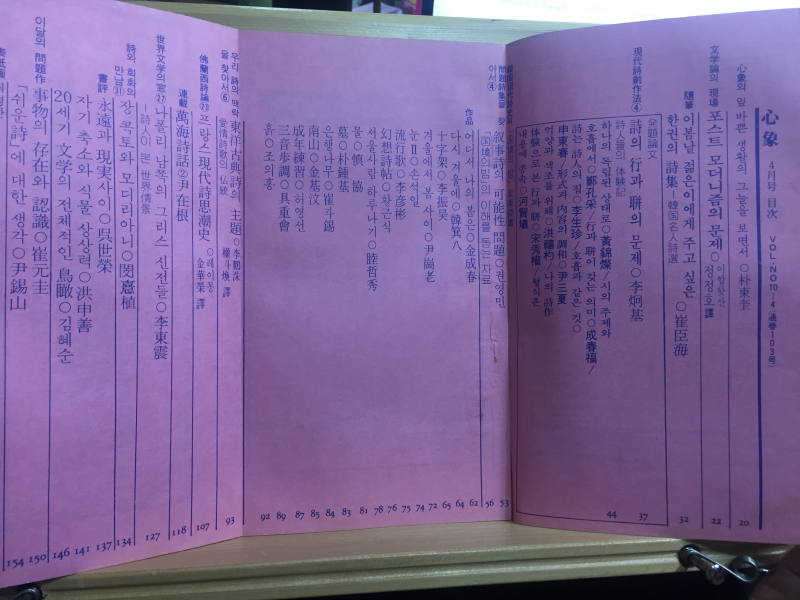 心象 4月号 目次 VOL.NO10-4(通巻103号)
心象의 앞 바쁜 생활의 그늘을 보면서○朴東奎 20
文学論의 現場 포스트 모더니즘의 문제○이합핫산 정정호 譯 22
随筆 이봄날 젊은이에게 주고 싶은○崔臣海 32
한권의 詩集─韓国名人詩選
現代詩創作法④ 発題論文
詩의 行과 聯의 문제○李炯基 37
詩人들의 体験記 44
호흡에서○鄭孔采/行과 聯이 갖는 의미○成春福/
하나의 독립된 상태로○黃錦燦/시의 주제와
詩는 詩人의 집○李生珍/호흡과 같은 것○
申東春/形式과 内容의 調和○尹三夏
연양과 색조를 위해○洪禧杓/나의 詩作
体験으로 본 行과 聯○宋秀權/형식은
내용에 종속○河賢埴
問題詩集을 찾아서④ 叙事詩의 可能性 問題○권영민 53
「国境의밤」의 이해를 돕는 자료 56
作品 어디서 나의 봄은○金成春 62
다시 겨울에○韓箕八 64
겨울에서 봄 사이○尹崗老 65
十字架○李振昊 72
눈Ⅱ○손석일 74
流行歌○李彦彬 75
幻想詩帖○황근식 76
서울사람 하루나기○睦哲秀 78
물○愼協 81
墓○朴鍾基 83
은행나무○崔斗錫 84
南山○金基汶 85
成年練習○허영선 87
三音歩調○具重會 89
흙○조의홍 92
우리 詩의 맥락을 찾아서⑥ 東洋古典詩의 主題○李鶴洙 93
愛情詩歌의 仏統 權斗煥 譯
佛蘭西詩論㉓ 프랑스現代詩思潮史○레이몽 金華榮 譯 107
連載 萬海詩話②尹在根 118
世界文学의窓㉗ 나폴리 남쪽의 그리스 신전들○李東震 127
─詩人이 본 世界情景
詩와 회화의 만남㉛ 장 콕토와 모디리아니○閔熹植 134
書評 永遠과 現実사이○呉世榮 137
자기 축소와 식물 상상력○洪申善 141
20세기 文学의 전체적인 鳥瞰○김혜순 146
이달의 問題作 事物의 存在와 認識○崔元圭 150
「쉬운詩」에 대한 생각○尹錫山 154